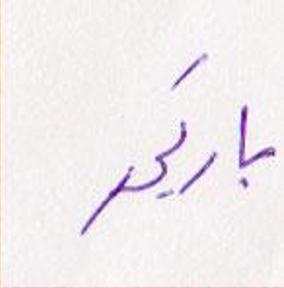 باریکر